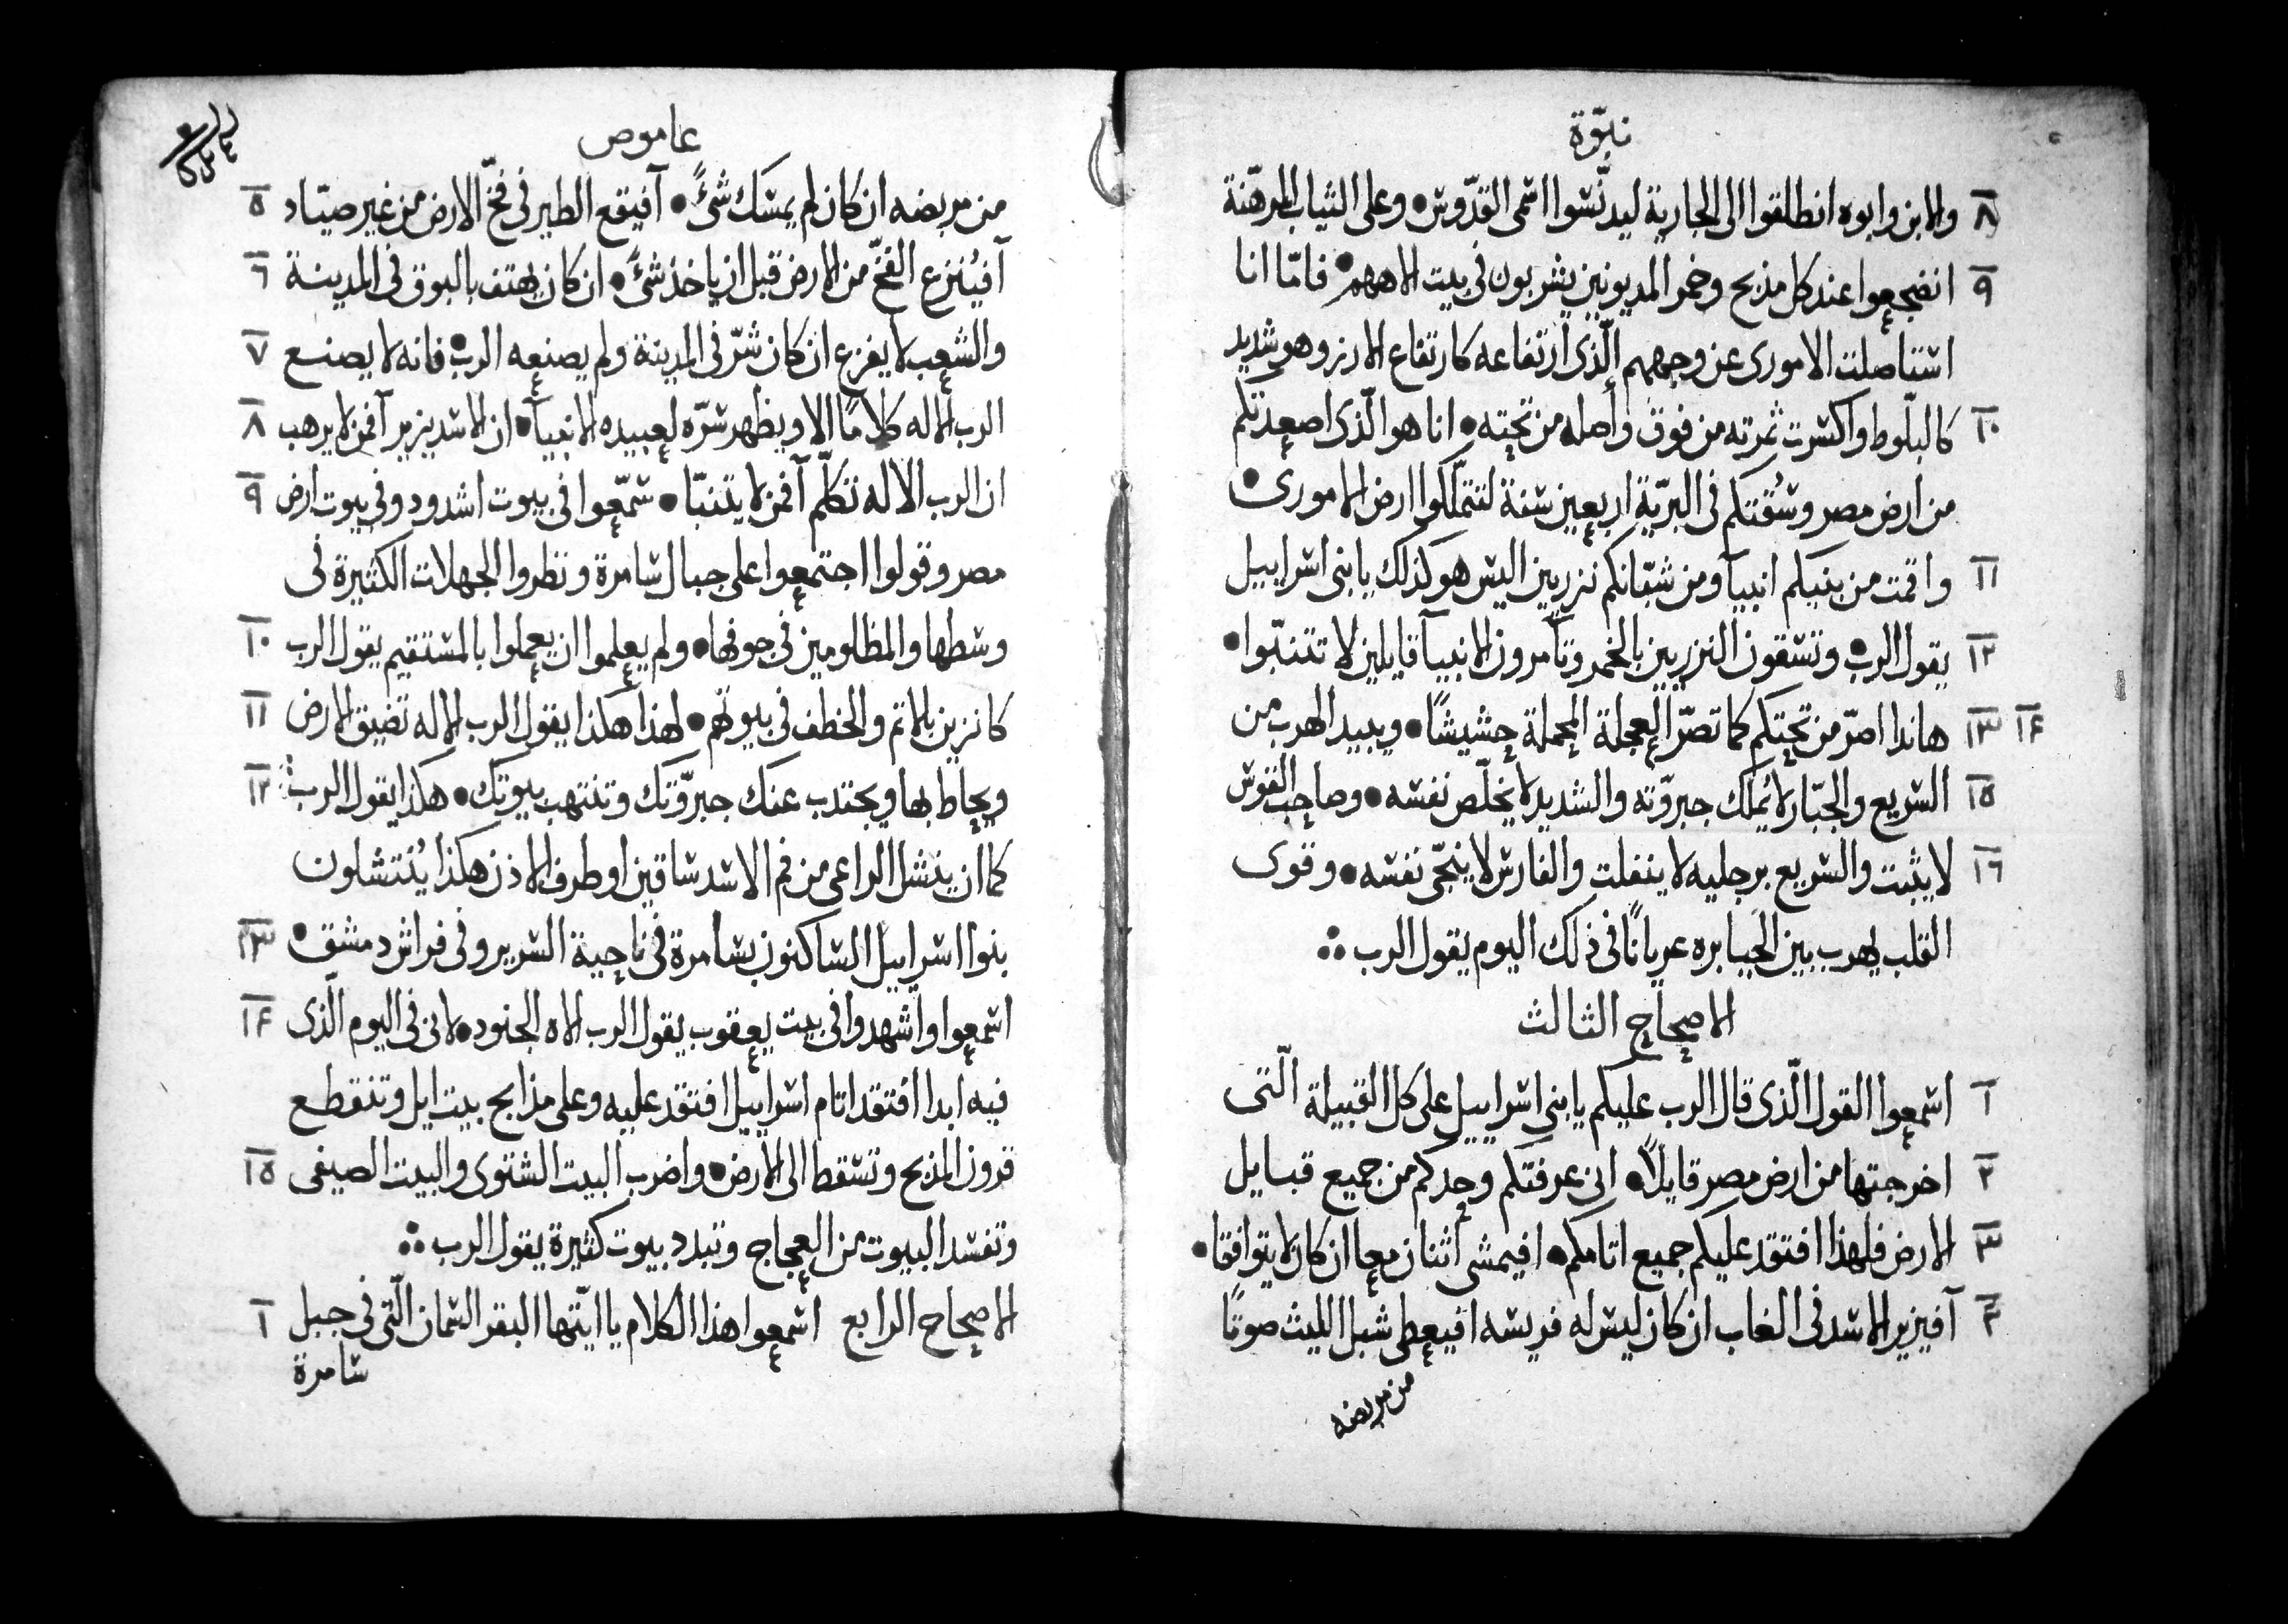 نبوّة
٨ والابن وابوه انطلقوا الى الجارية ليدنّسوا اسمى القدّوس • وعلى الثياب المرهّنة
٩ انضجعوا عند كل مذبح وخمر المديونين يشربون فى بيت الاههم • فامّا انا
استاصلت الامورى عن وجههم الّذى ارتفاعه كارتفاع الارز وهو شديد
١٠ كالبلّوط واكسرت ثمرته من فوق وأصله من تحته • انا هو الّذى اصعدتكم
من ارض مصر وسُقتكم فى البريّة اربعين سنة لتتملّكوا ارض الامورى •
١١ واقمت من بنيكم انبيآ ومن شبّانكم نزريين اليس هو كذلك يا بنى اسراييل
١٢ يقول الرب • وتسقون النزريين بالخمر وتأمرون الانبيآ قايلين لا تتنبّوا •
١٣ ١٤ هانذا اصرّ من تحتكم كما تصرّ العجلة المحملة حشيشًا • ويبيد الهرب من
١٥ السريع والجبّار لا يُملك جبروّته والشديد لا يخلّص نفسه • وصاحب القوس
١٦ لا يثبت والسريع برجليه لا ينفلت والفارس لا ينجّى نفسه • وقوى
القلب يهرب بين الجبابره عريانًا فى ذلك اليوم يقول الرب ∴
الاصحاح الثالث
١ اسمعوا القول الّذى قال الرب عليكم يا بنى اسراييل على كل القبيلة الّتى
٢ اخرجتها من ارض مصر قايلاً • انى عرفتكم وحدكم من جميع قبايل
٣ الارض فلهذا افتقد عليكم جميع اثامكم • افيمشى أثنان معا ان كان لا يتوافقا •
٤ آفيزير الاسد فى الغاب ان كان ليس له فريسه افيعطى شبل الليث صوتًا
من مربضه
عاموص
من مربضه ان كان لم يمسك شئً • آفيقع الطير فى فخّ الارض من غير صيّاد ٥
آفيُنزع الفخّ من الارض قبل ان ياخذ شئً • ان كان يهتف بالبوق فى المدينة ٦
والشعب لا يفزع ان كان شرّ فى المدينة ولم يصنعه الرب • فانه لا يصنع ٧
الرب الاله كلامًا الا ويظهر سرّه لعبيده الانبيآ • ان الاسد يزير آفمن لا يرهب ٨
ان الرب الاله تكلّم آفمن لا يتنبّا • سمّعوا فى بيوت اشدود وفى بيوت ارض ٩
مصر وقولوا اجتمعوا على جبال سامرة ونظروا الجهلات الكثيرة فى
وسطها والمظلومين فى جوفها • ولم يعلموا ان يعملوا بالمستقيم يقول الرب ١٠
كانزين بالاثم والخطف فى بيوتهم • لهذا هكذا يقول الرب الاله تضيق الارض ١١
ويحاط بها ويجتدب عنك جبروّتك وتنتهب بيوتك • هكذا يقول الرب ١٢
كما ان ينشل الراعى من فم الاسد ساقين او طرف الاذن هكذا يُنتشلون
بنوا اسراييل الساكنون بسامرة فى ناحية السرير وفى فراش دمشق • ١٣
اسمعوا واشهدوا فى بيت يعقوب يقول الرب الاه الجنود • لانى فى اليوم الّذى ١٤
فيه ابدا افتقد اثام اسراييل افتقد عليه وعلى مذابح بيت ايل وتنقطع
قرون المذبح وتسقط الى الارض • واضرب البيت الشتوى والبيت الصيفى ١٥
وتفسد البيوت من العجاج وتبدد بيوت كثيرة يقول الرب ∴
الاصحاح الرابع اسمعوا هذا الكلام يا ايّتها البقر السمان الّتى فى جبل ١
سامرة